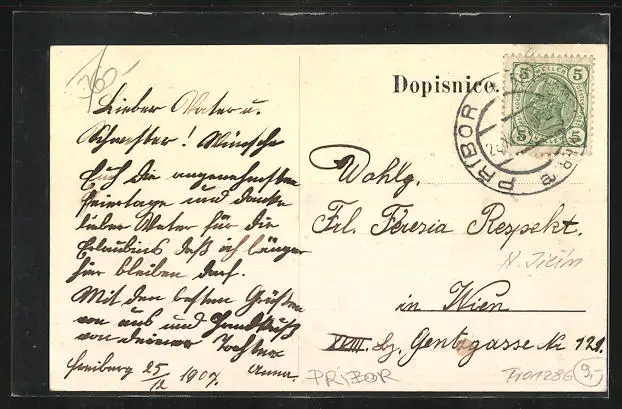 360-
Lieber Vater u.
Schwester! Wünsche
Euch die angenehmsten
Feiertage und danke
lieber Vater für die
Erlaubnis daß ich länger
hier bleiben darf.
Mit den besten Grüßen
von uns und Handkuß
von deiner Tochter
Anna.
Freiberg 25/12 1907.
Dopisnice.
5 5
HELLER
5 5
PŘÍBOR
Wohlg.
Frl. Terezia Respekt.
in Wien
XVIII. Bz. Gentzgasse Nr 129.
PRIBOR
F1071286
9,-